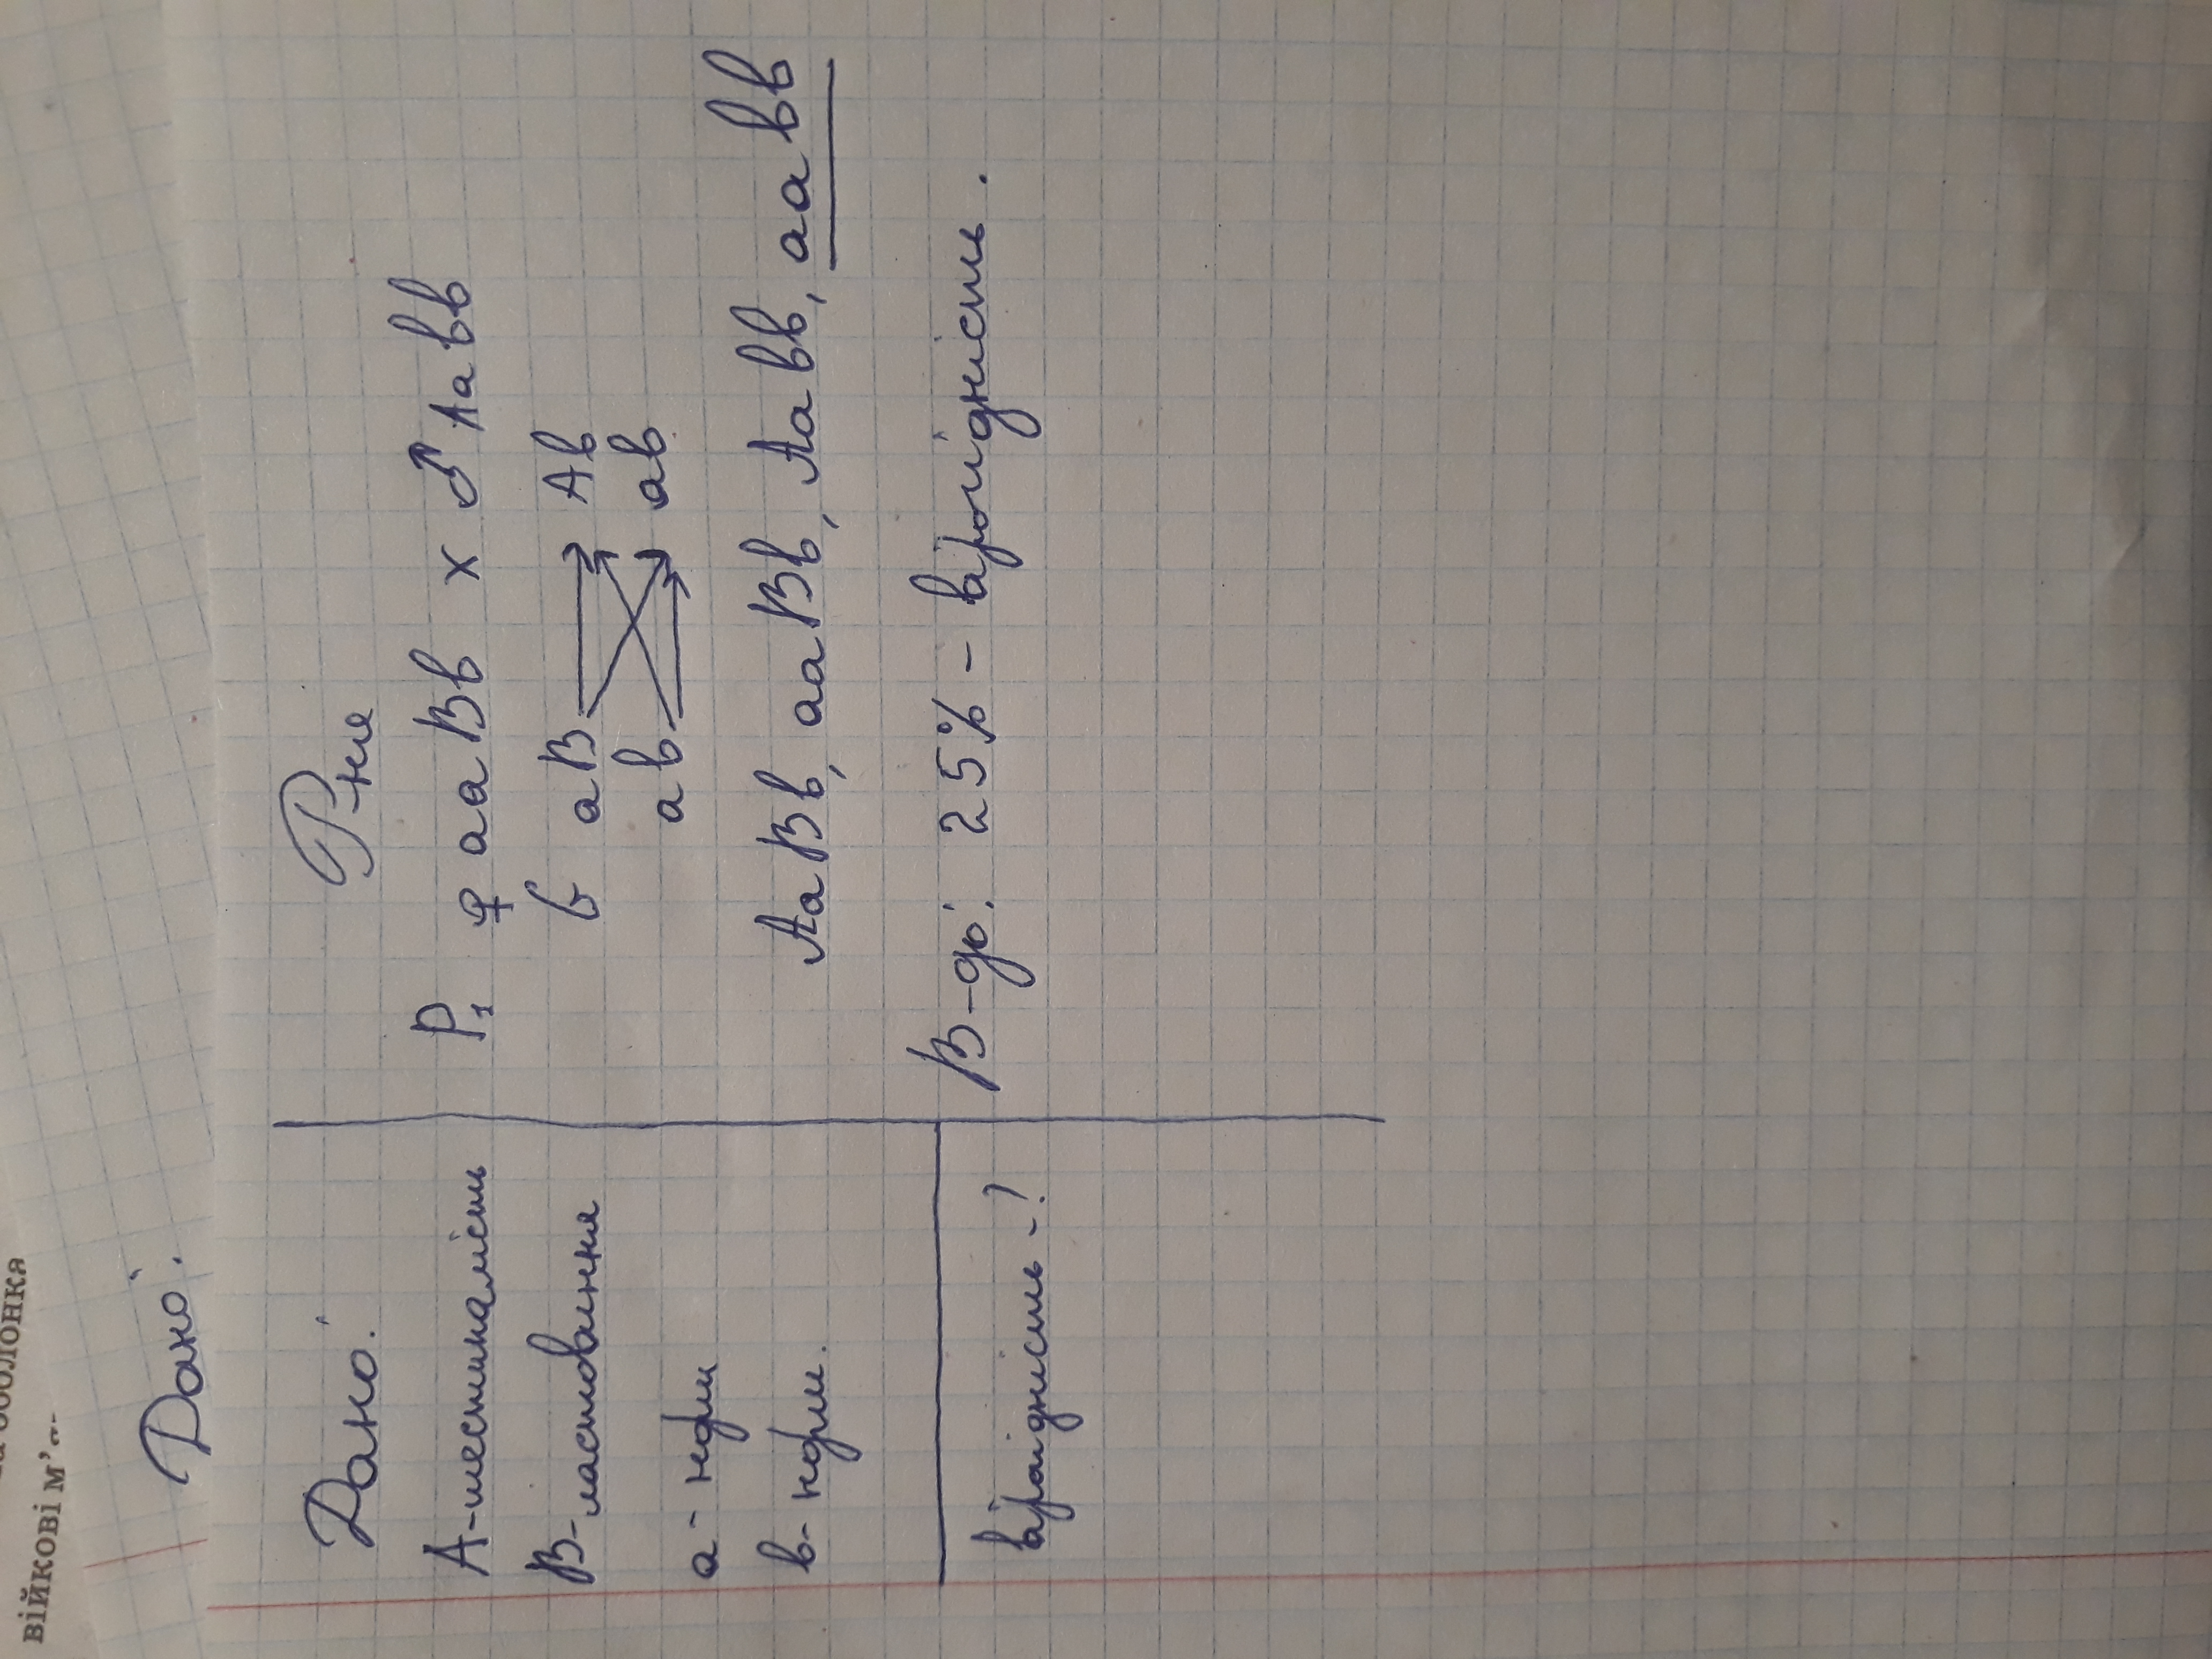 оболонка
війкові м'
Дано:
Дано:
А-шестипалість
В-ластовиння
а - норм
в - норм.
вірогідність - ?
Р-ня
P₁ ♀ ааВв х ♂ Аавв
G аВ Ав
ав ав
АаВв, ааВв, Аавв, аавв
В-дь: 25% - вірогідність.